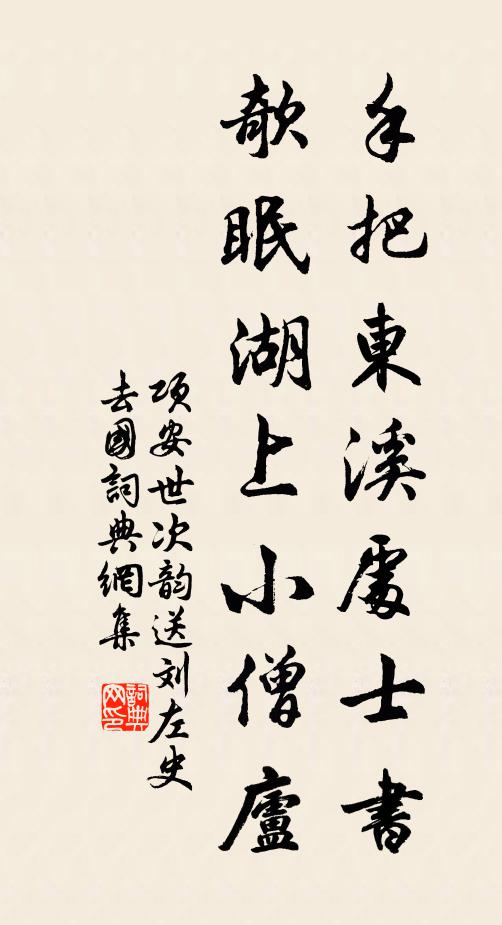 手把東溪處士書
欹眠湖上小僧廬
项安世次韵送刘左史
去國詞典網集
詞典網印